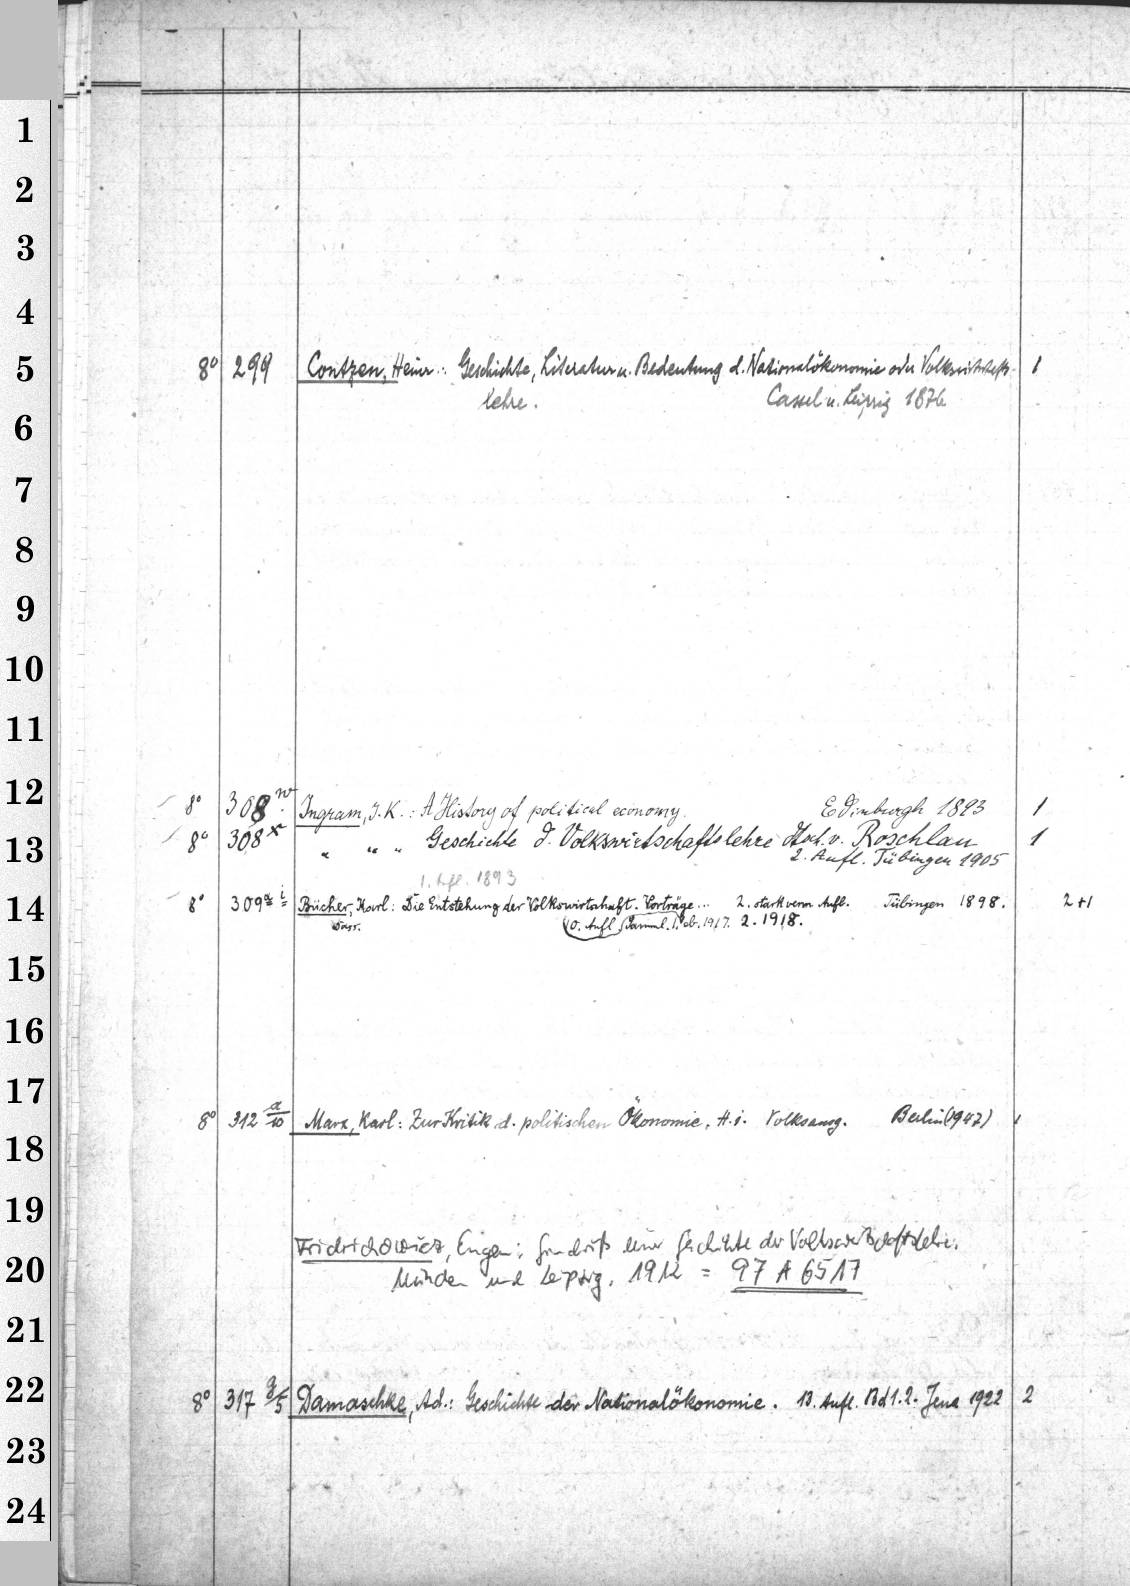 1
2
3
4
5
8° 299 Contzen, Heinr.: Geschichte, Literatur u. Bedeutung d. Nationalökonomie oder Volkswirtschafts- 1
lehre. Cassel u. Leipzig 1876
6
7
8
9
10
11
12
8° 308 w Ingram, J. K.: A History of political economy. Edinburgh 1893 1
13
8° 308 x " " " Geschichte d. Volkswirtschaftslehre v. Roschlau 1
2. Aufl. Tübingen 1905
1. Afl. 1893
14
8° 309 Bücher, Karl: Die Entstehung der Volkswirtschaft. Vorträge... 2. stark verm Aufl. Tübingen 1898. 2+1
Dass. 10. Aufl Samml. 1. 1917. 2. 1918.
15
16
17
8° 312 a/10 Marx, Karl: Zur Kritik d. politischen Ökonomie. H. 1. Volksausg. Berlin (1947) 1
18
19
Fridrichowicz, Eugen: Grundriß einer Geschichte der Volkswirtschaftslehre.
20
München und Leipzig. 1912 = 97 A 6517
21
22
8° 317 Damaschke, Ad.: Geschichte der Nationalökonomie. 13. Aufl. Bd 1.2. Jena 1922 2
23
24